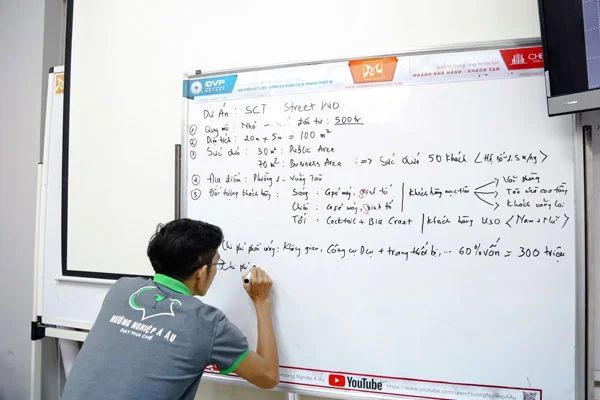 BVP
HOÀNH NHÀ HÀNG - KHÁCH SẠN
Dự Án: SCT Street Pub
① Quy mô: Nhỏ - đầu tư: 500tr
② Diện tích: 20m x 5m = 100 m²
③ Sức chứa: 30 m²: Public Area
70 m²: Business Area. :=> Sức chứa 50 khách < Hệ số 1.5m/ng >
④ Địa điểm: Phường 1 - Vũng Tàu
⑤ Đối tượng khách hàng: Sáng: Cafe máy, sinh tố
Khách hàng mục tiêu
Văn phòng
Toà nhà cao tầng
Khách vãng lai
Chiều: Cafe máy, sinh tố
Tối: Cocktail + Bia Craft | Khách hàng USD < Nam + Nữ >
Chi phí phần cứng: Không gian, Công cụ Dcụ + trang thiết bị, ... 60% vốn = 300 triệu
Chi phí
HƯỚNG NGHIỆP Á ÂU
DẠY PHA CHẾ
YouTube